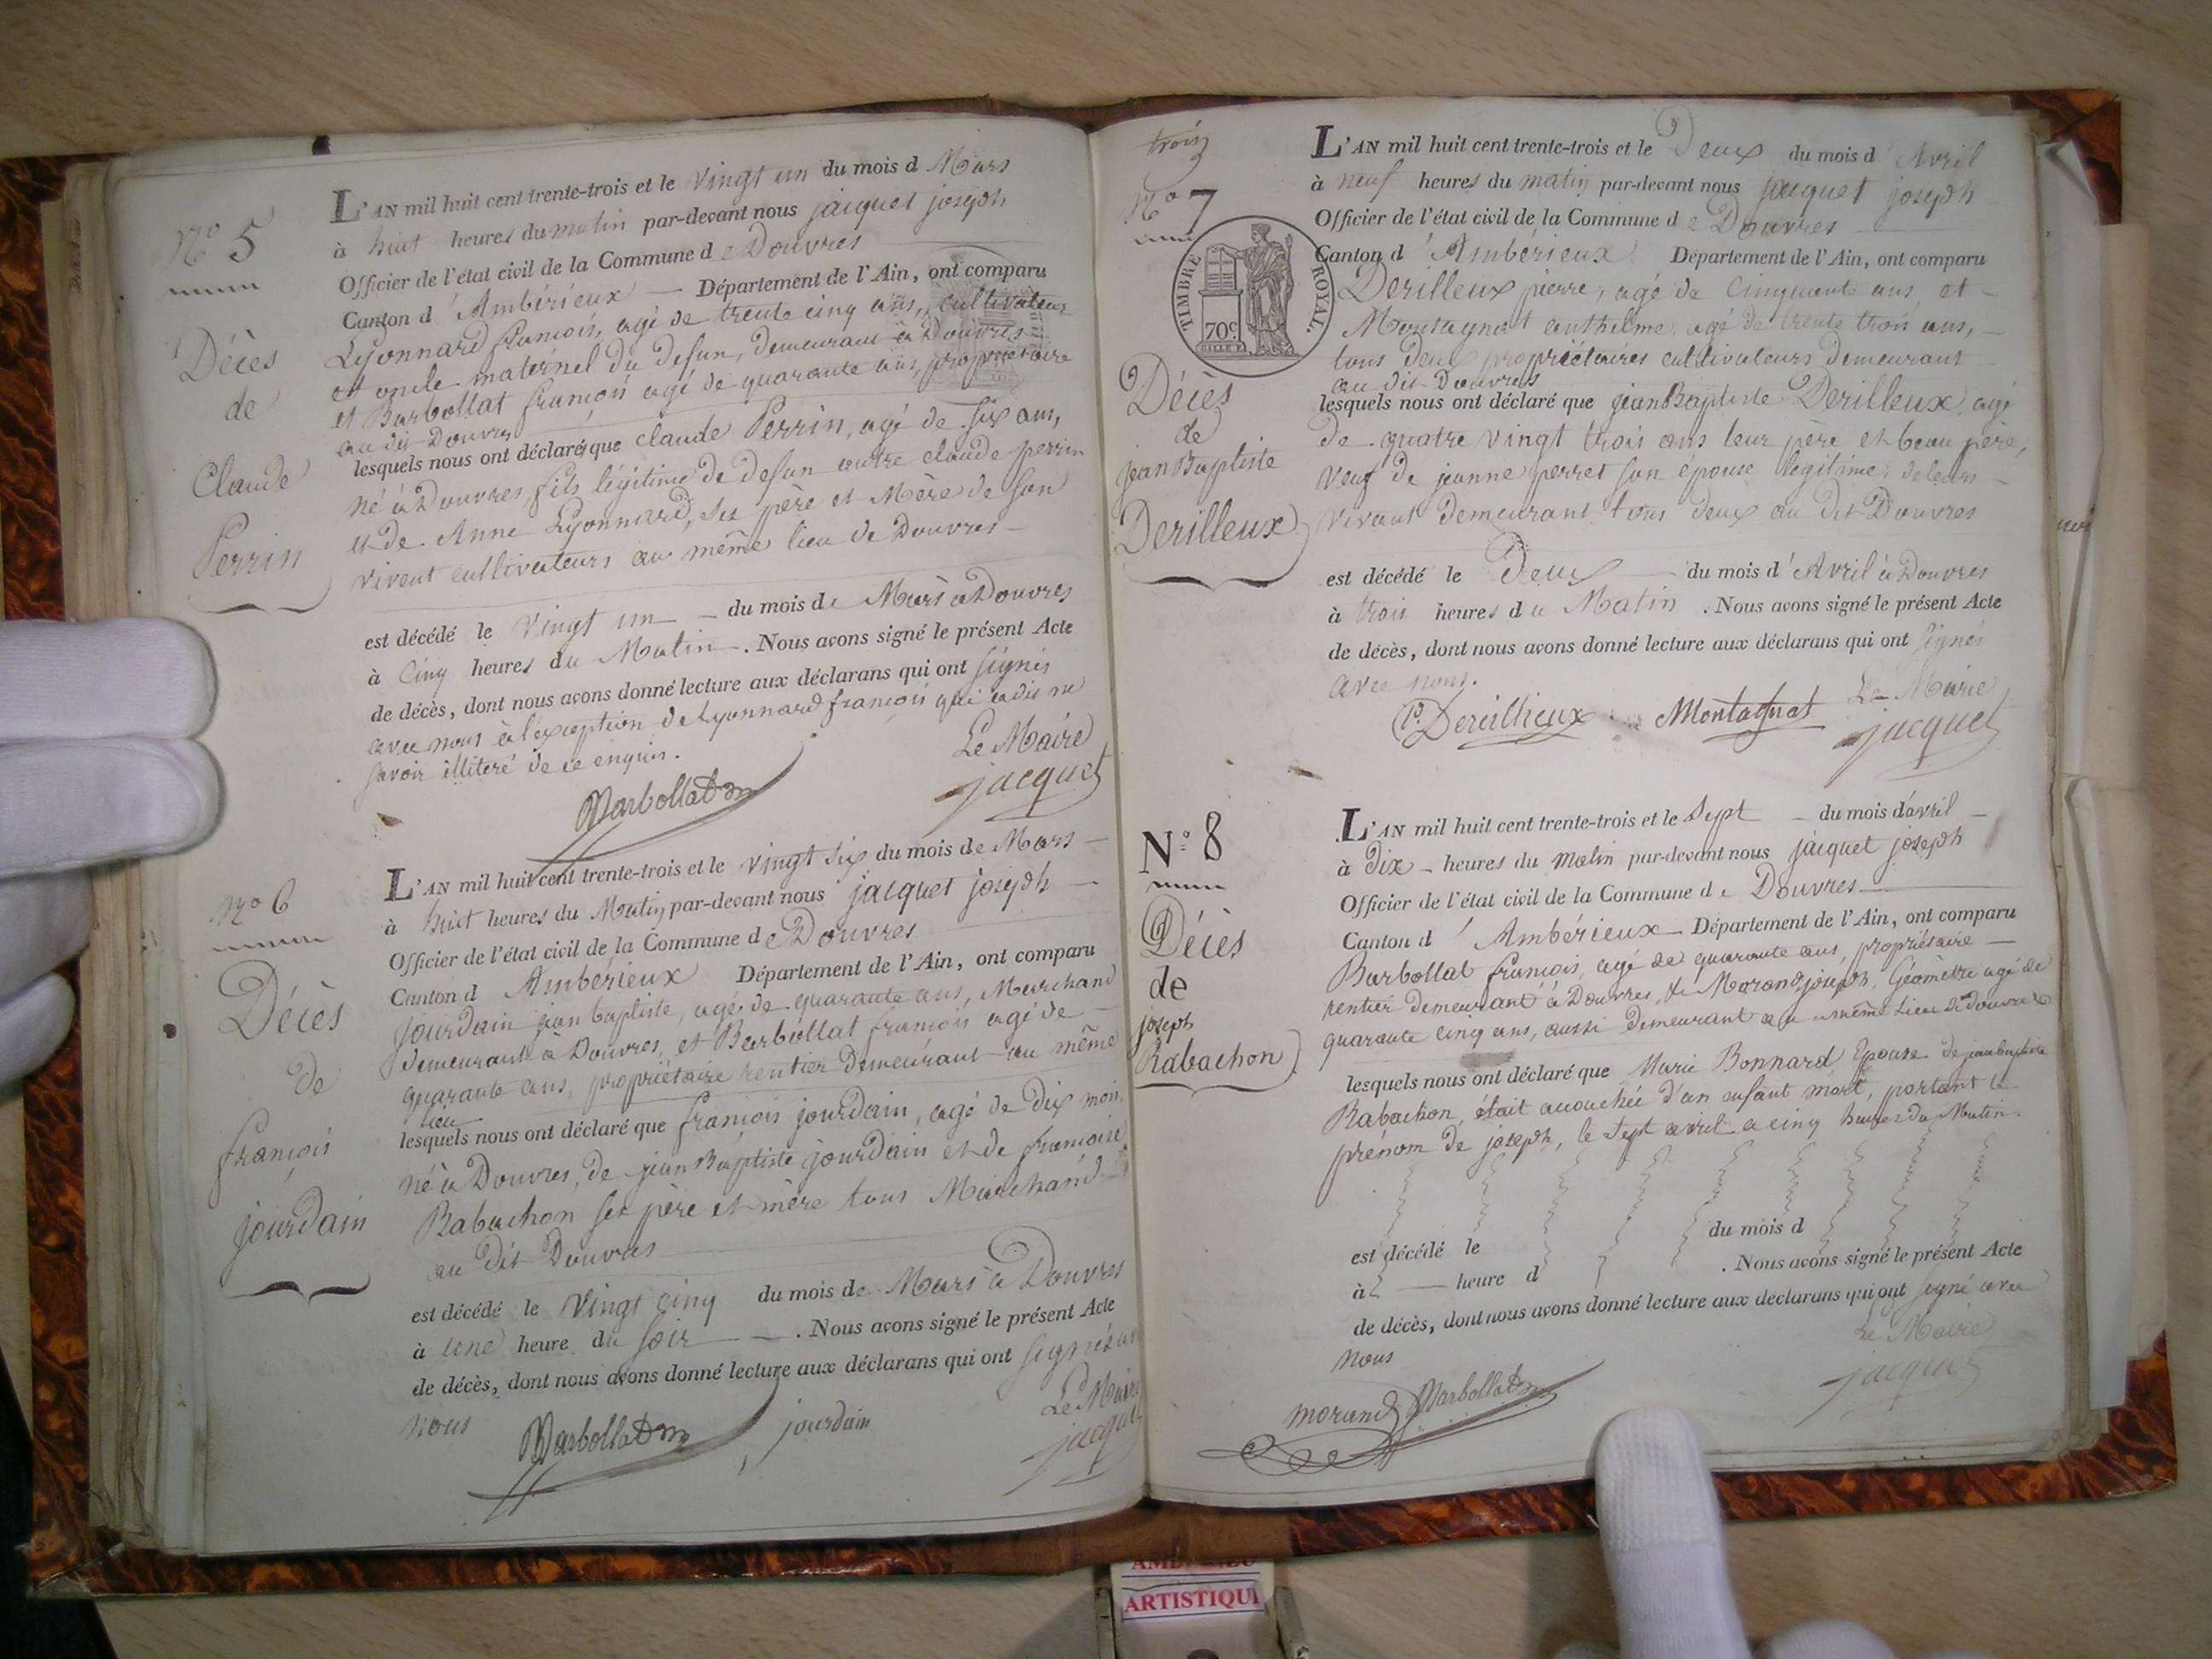 N° 5
Décès
de
Claude
Perrin
L'AN mil huit cent trente-trois et le vingt un du mois d Mars
à huit heures du matin par-devant nous jacquet joseph
Officier de l'état civil de la Commune de Douvres
Canton d'Ambérieux Département de l'Ain, ont comparu
Lyonnard francois, agé de trente cinq ans, cultivateur
et oncle maternel du defun, demeurant à Douvres
et Barbollat francois agé de quarante ans, propriétaire
au dit Douvres
lesquels nous ont déclaré que claude Perrin, agé de six ans,
né à Douvres, fils légitime de defun autre claude perrin
et de Anne Lyonnard, ses père et Mère de son
vivent cultivateurs au même lieu de Douvres
est décédé le vingt un du mois de Mars à Douvres
à Cinq heures du Matin. Nous avons signé le présent Acte
de décès, dont nous avons donné lecture aux déclarans qui ont signés
avec nous à l'exception de Lyonnard francois qui a dis ne
savoir illiteré de ce enquis.
Le Maire
Barbollat jacquet
N° 6
Décès
de
francois
jourdain
L'AN mil huit cent trente-trois et le vingt six du mois de Mars
à huit heures du Matin par-devant nous jacquet joseph
Officier de l'état civil de la Commune de Douvres
Canton d Ambérieux Département de l'Ain, ont comparu
jourdain jean baptiste, agé de quarante ans, Marchand
demeurant à Douvres, et Barbollat francois agé de
quarante ans, propriétaire rentier demeurant au même
lieu
lesquels nous ont déclaré que francois jourdain, agé de Dix mois,
né à Douvres, de jean Baptiste jourdain et de francoise
Rabachon ses père et mère tous Marchand
au dit Douvres
est décédé le Vingt cinq du mois de Mars à Douvres
à une heure du soir. Nous avons signé le présent Acte
de décès, dont nous avons donné lecture aux déclarans qui ont signés
nous Le Maire
Barbollat jourdain jacquet
trois
N° 7
TIMBRE ROYAL.
70c.
Décès
de
jean Baptiste
Derilleux
L'AN mil huit cent trente-trois et le Deux du mois d Avril
à neuf heures du matin par-devant nous jacquet joseph
Officier de l'état civil de la Commune de Douvres
Canton d'Ambérieux Département de l'Ain, ont comparu
Derilleux pierre, agé de Cinquante ans et
Montagnat anthelme, agé de trente trois ans,
tous deux propriétaires cultivateurs demeurant
au dit Douvres
lesquels nous ont déclaré que jean Baptiste Derilleux, agé
de quatre vingt trois ans leur père et beau père,
veuf de jeanne perret son épouse légitime; de leurs
vivant demeurant tous deux au dit Douvres
est décédé le Deux du mois d'Avril à Douvres
à trois heures du Matin. Nous avons signé le présent Acte
de décès, dont nous avons donné lecture aux déclarans qui ont signés
avec nous. Le Maire
P. Dereillieux Montagnat jacquet
N° 8
Décès
de
joseph
Rabachon
L'AN mil huit cent trente-trois et le Sept du mois d'avril
à Dix heures du matin par-devant nous jacquet joseph
Officier de l'état civil de la Commune de Douvres
Canton d'Ambérieux Département de l'Ain, ont comparu
Barbollat francois, agé de quarante ans, propriétaire
rentier demeurant à Douvres, & Morand joseph, Géomètre agé de
quarante cinq ans, aussi demeurant au même lieu de Douvres
lesquels nous ont déclaré que Marie Bonnard Epouse de jean baptiste
Rabachon, était accouchée d'un enfant mort, portant le
prénom de joseph, le sept avril a cinq heures du Matin.
est décédé le du mois d
à heure d . Nous avons signé le présent Acte
de décès, dont nous avons donné lecture aux déclarans qui ont signé avec
nous Le Maire
morand Barbollat jacquet
ARTISTIQU